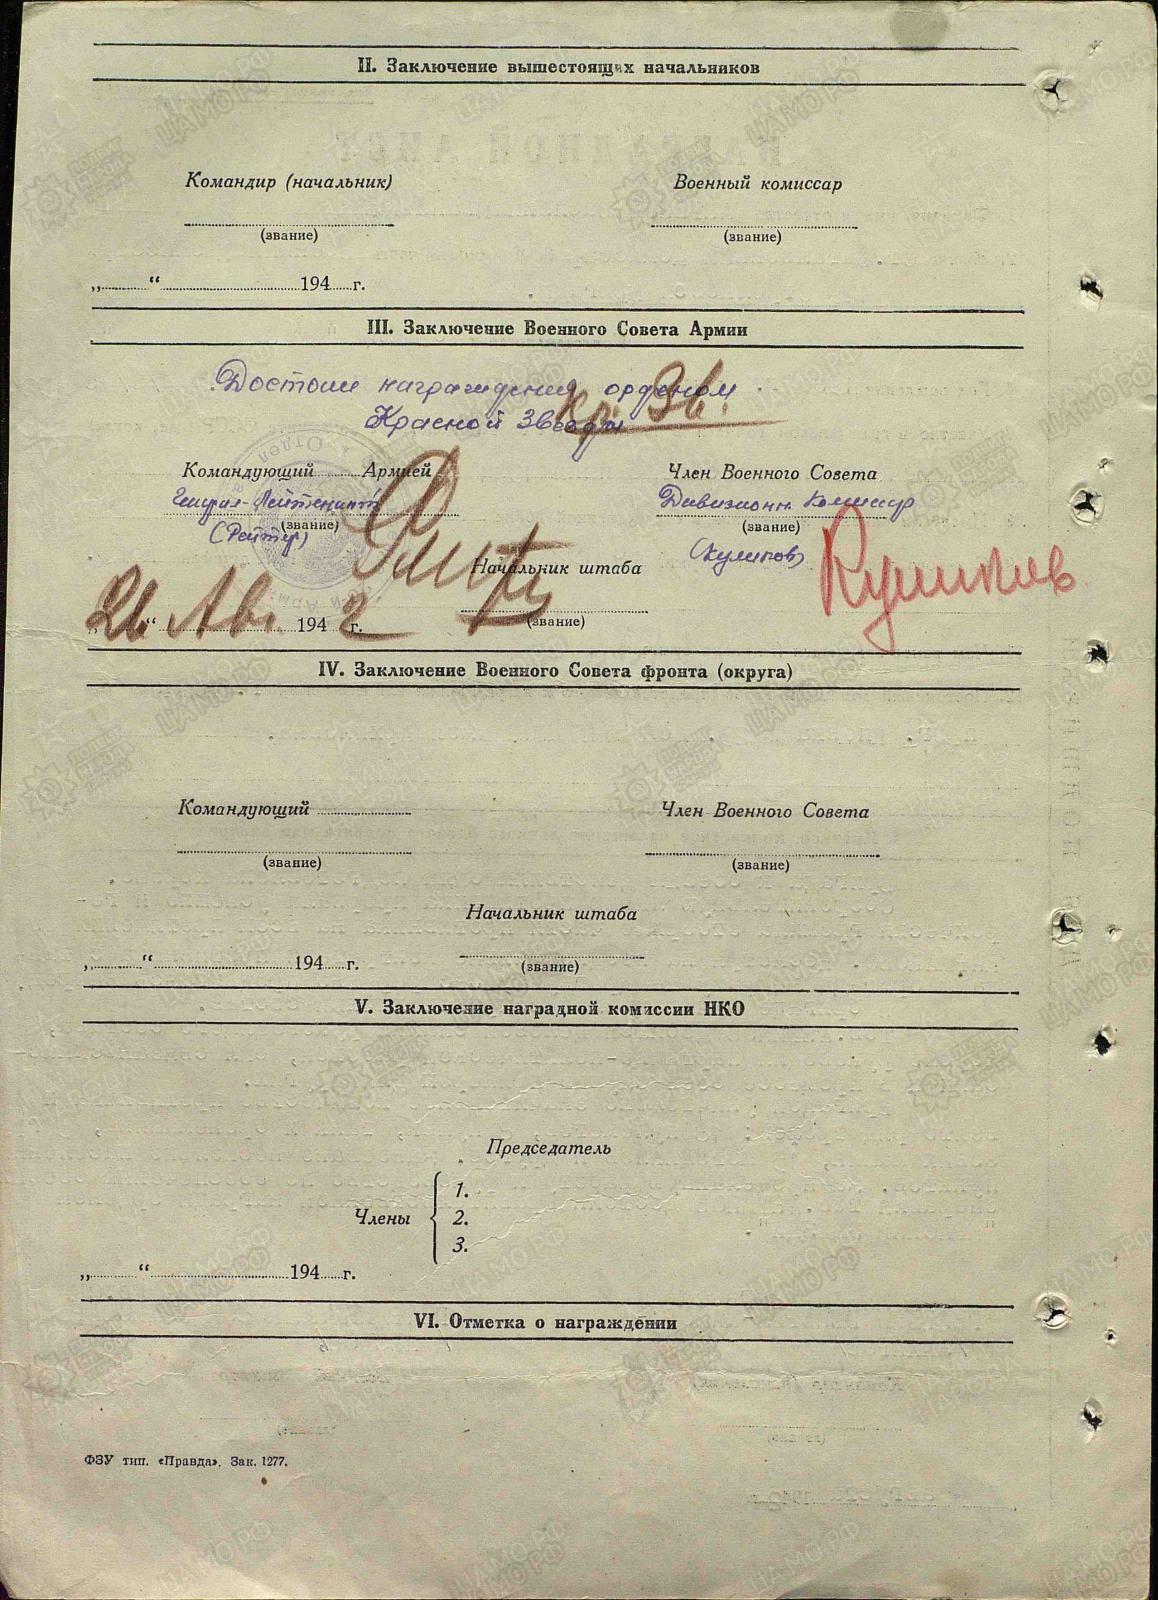 II. Заключение вышестоящих начальников
Командир (начальник) Военный комиссар
(звание) (звание)
„ “ 194 г.
III. Заключение Военного Совета Армии
Достоин награждения орденом
Красной Звезды
Кр. Зв.
Командующий Армией Член Военного Совета
Генерал-Лейтенант Дивизионн. Комиссар
(звание) (звание)
(Рейтер) (Куликов)
Куликов
Начальник штаба
„26“ Авг. 1942 г. (звание)
IV. Заключение Военного Совета фронта (округа)
Командующий Член Военного Совета
(звание) (звание)
Начальник штаба
„ “ 194 г. (звание)
V. Заключение наградной комиссии НКО
Председатель
1.
Члены 2.
3.
„ “ 194 г.
VI. Отметка о награждении
ФЗУ тип. «Правда». Зак. 1277.